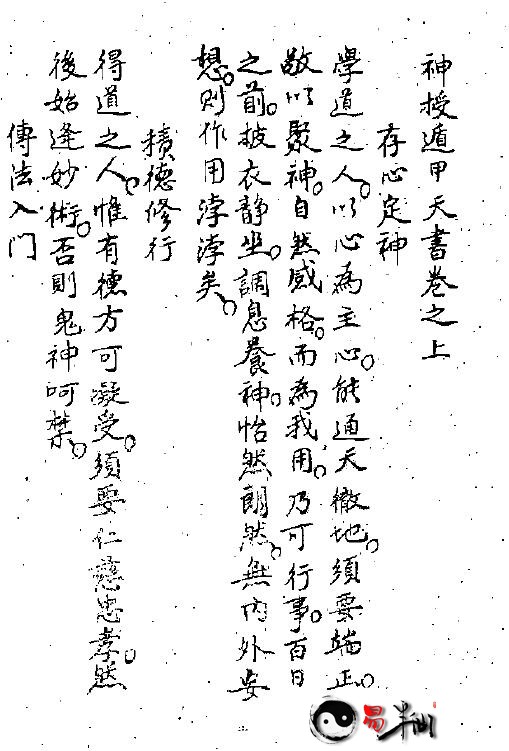 神授遁甲天書卷之上
存心定神
學道之人以心為主心。能通天徹地。須要端正。
敬以聚神。自然感格。而為我用。乃可行事。百日
之前。披衣静坐。調息養神。怡然朗然。無内外妄
想。則作用浡浡矣。
積德修行
得道之人。惟有德方可凝受。須要仁慈忠孝。然
後始逢妙術。否則鬼神呵禁。
傳法入门
易半仙